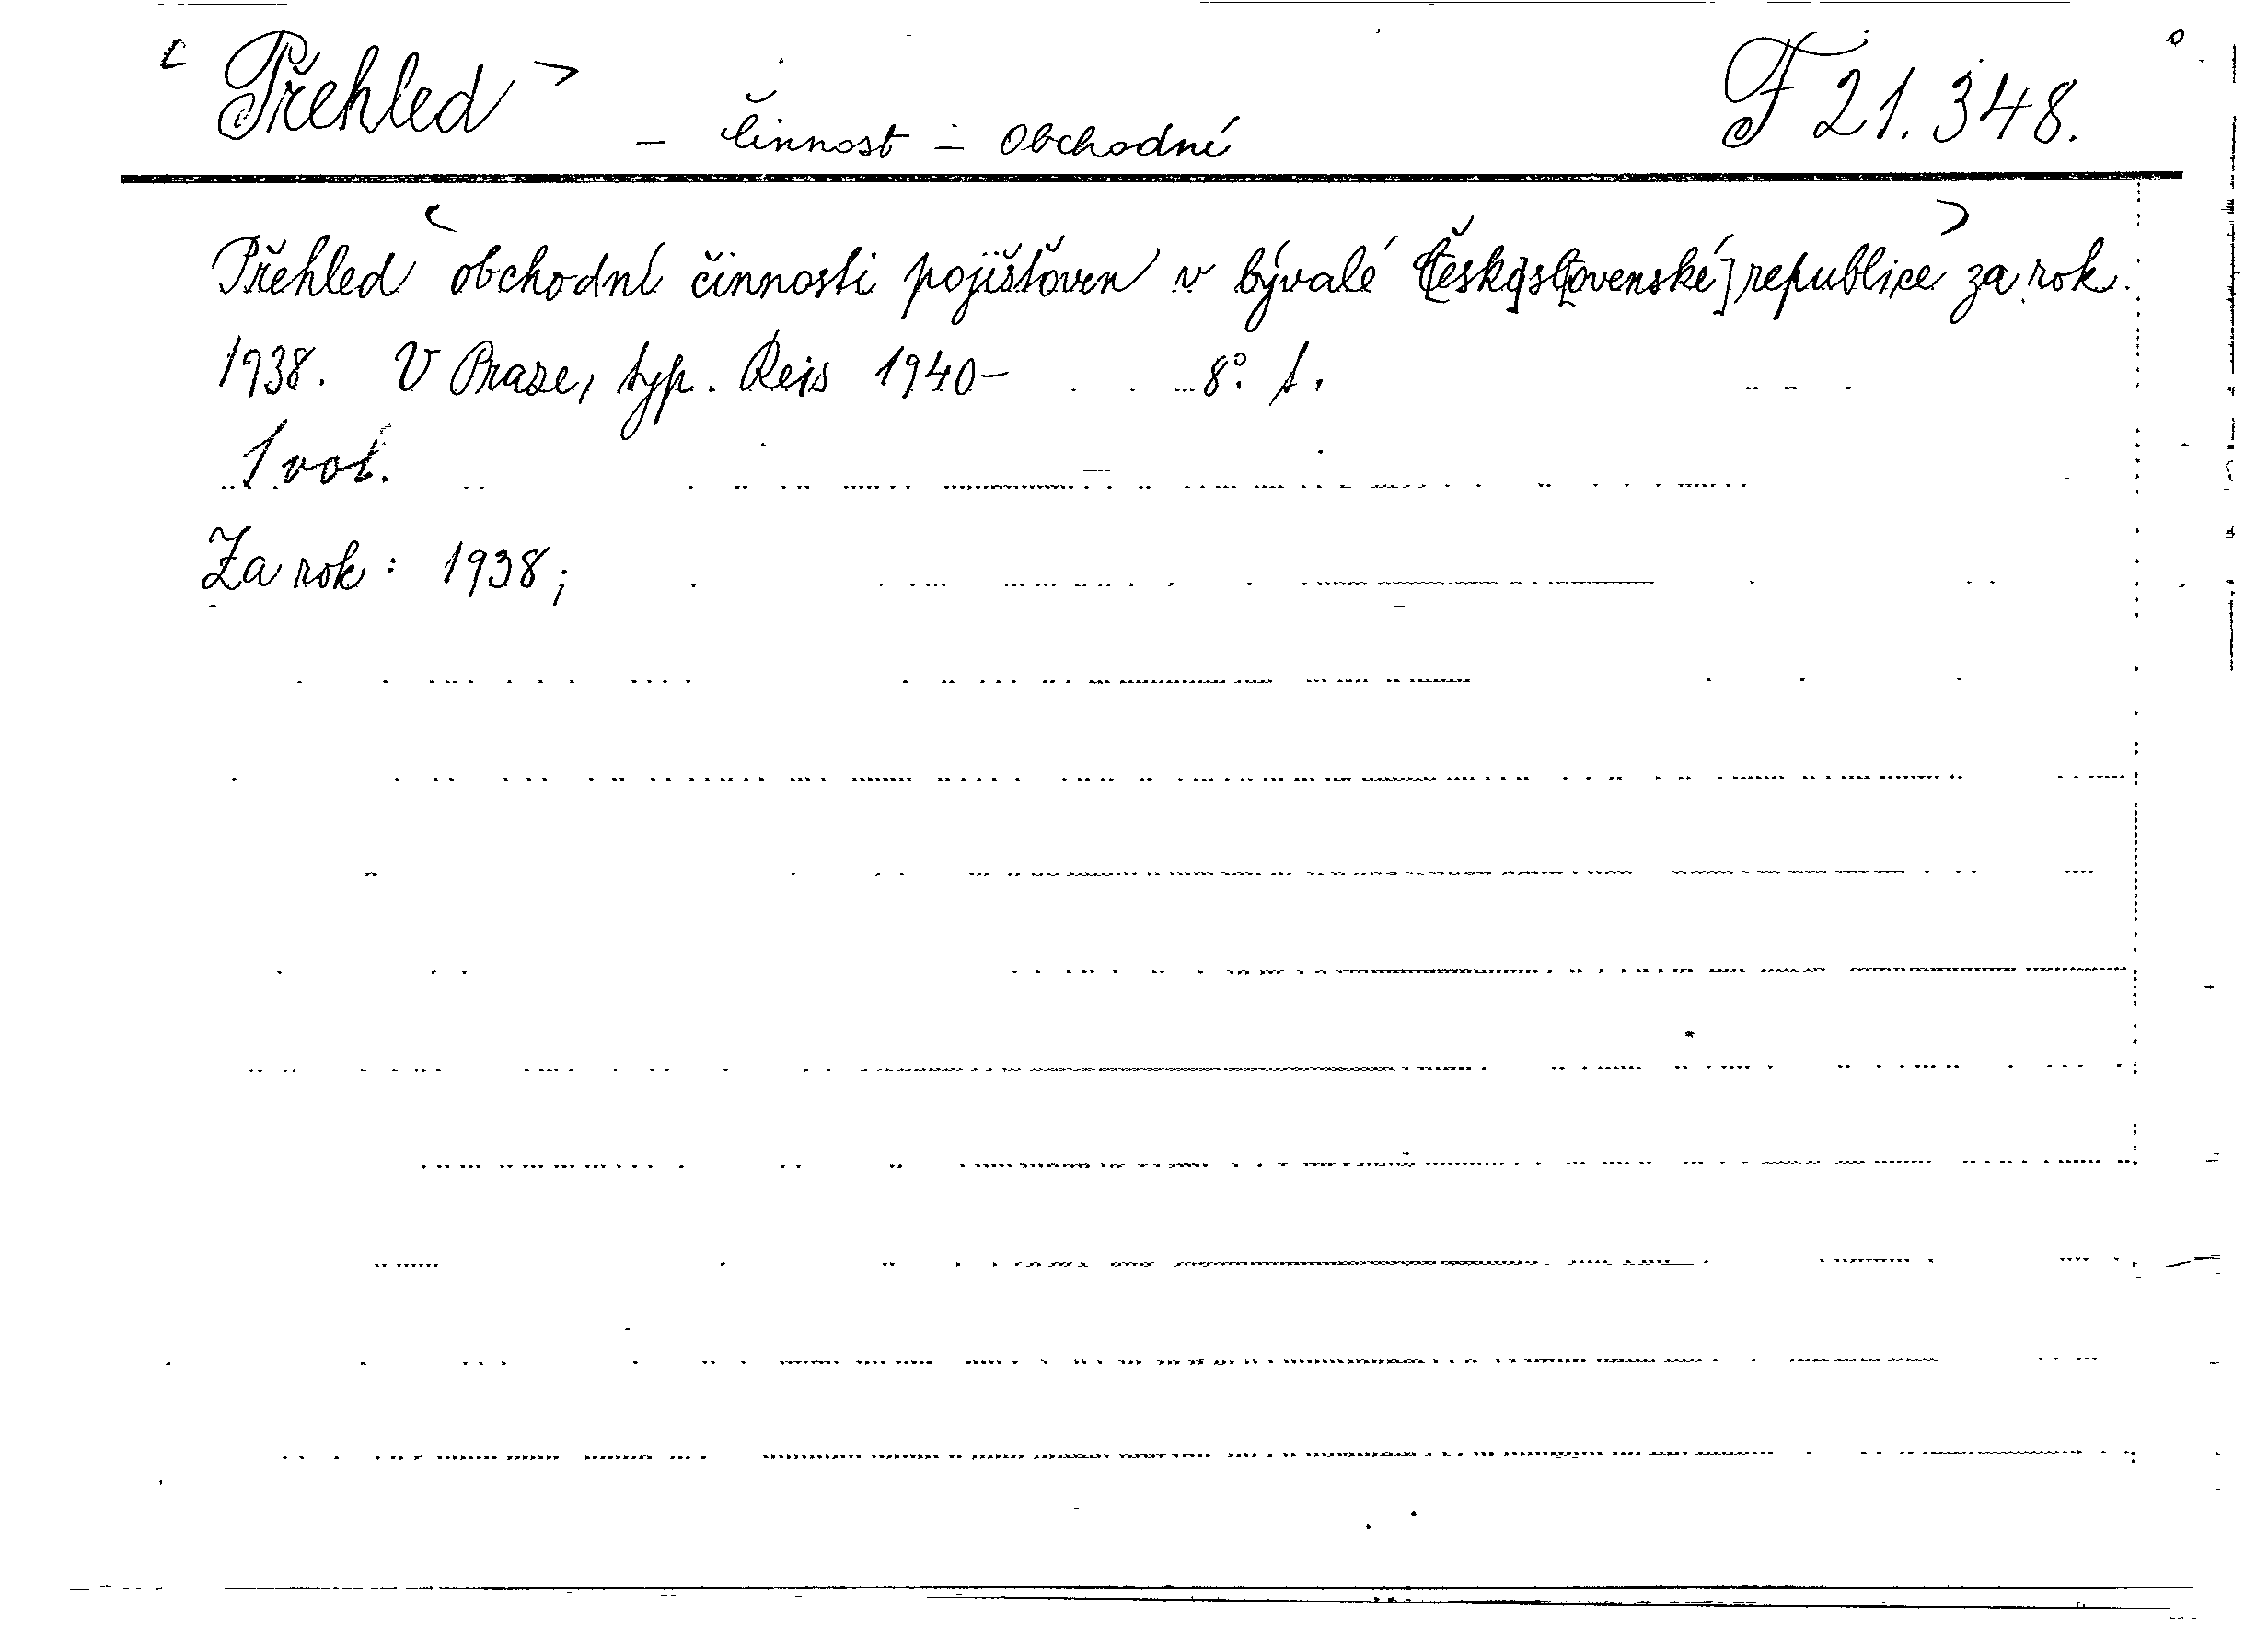 <Přehled> – činnost – obchodní F 21.348.
Přehled <obchodní činnosti pojišťoven v bývalé Česk[o]sl[ovenské] republice> za rok
1938. V Praze, typ. Reis 1940– 8°. f.
1 vol.
Za rok: 1938;